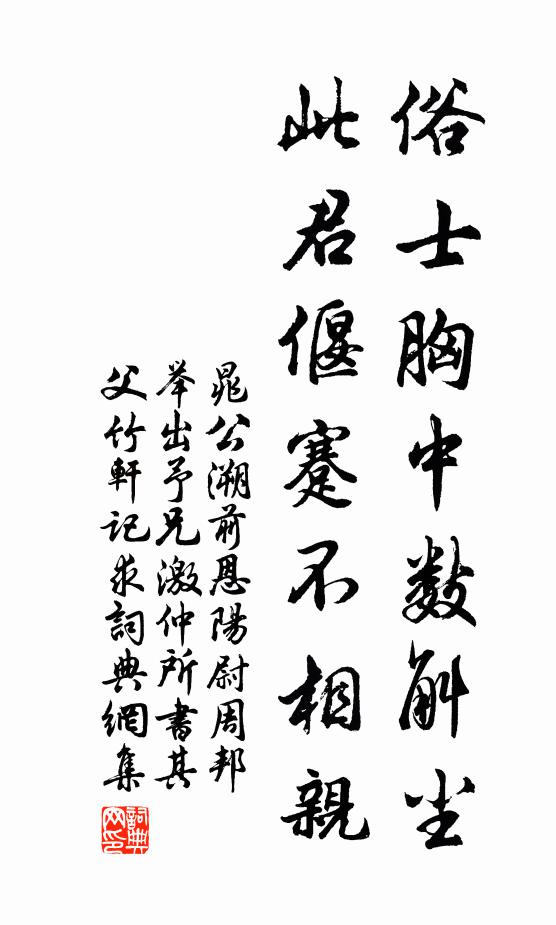 俗士胸中数斛尘
此君偃蹇不相親
晁公溯前恩陽尉周邦
举出予兄激仲所書其
父竹軒记求詞典網集
詞典
网印